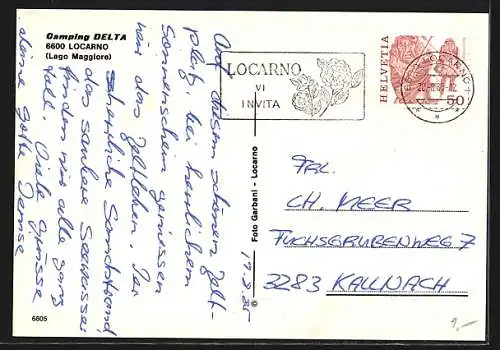 Camping DELTA
6600 LOCARNO
(Lago Maggiore)
Auf diesem schönen Zelt-
platz, bei herrlichem
Sonnenschein geniessen
wir das Zeltleben. Der
herrliche Sandstrand
das saubere Seewasser
finden wir alle ganz
toll. Viele Grüsse
deine Gotte Denise
17.8.85
6605
© Foto Garbani - Locarno
LOCARNO
VI
INVITA
HELVETIA
LOCARNO
50
FRL.
CH. MEER
FUCHSGRUBENWEG 7
3283 KALLNACH